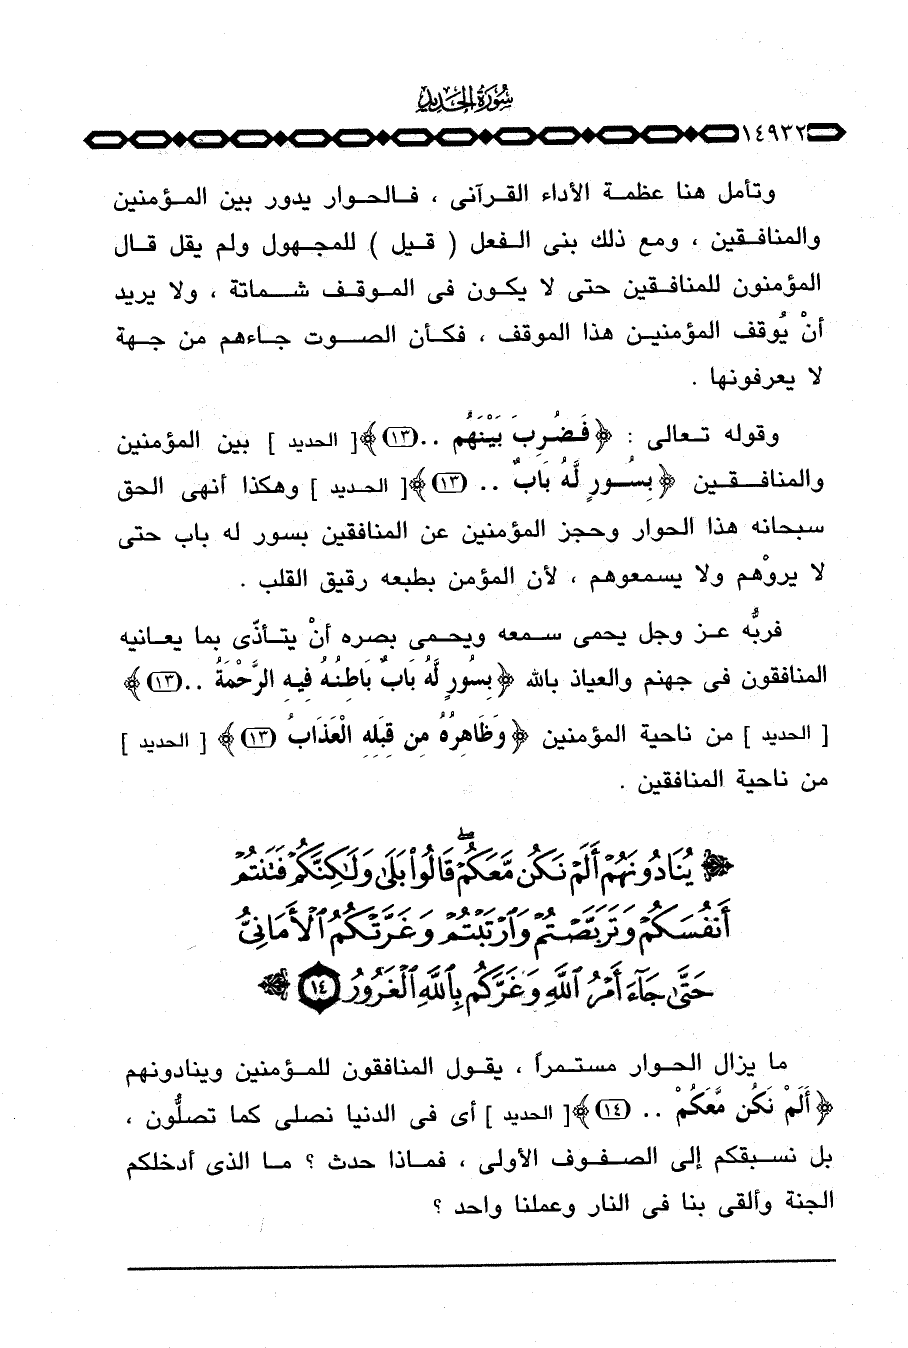 سورة الحديد
١٤٩٣٢
وتأمل هنا عظمة الأداء القرآنى ، فالحوار يدور بين المؤمنين
والمنافقين ، ومع ذلك بنى الفعل ( قيل ) للمجهول ولم يقل قال
المؤمنون للمنافقين حتى لا يكون فى الموقف شماتة ، ولا يريد
أنْ يُوقف المؤمنين هذا الموقف ، فكأن الصوت جاءهم من جهة
لا يعرفونها .
وقوله تعالى : ﴿ فَضُرِبَ بَيْنَهُم .. (١٣) ﴾ [ الحديد ] بين المؤمنين
والمنافقين ﴿ بِسُورٍ لَّهُ بَابٌ .. (١٣) ﴾ [ الحديد ] وهكذا أنهى الحق
سبحانه هذا الحوار وحجز المؤمنين عن المنافقين بسور له باب حتى
لا يروْهم ولا يسمعوهم ، لأن المؤمن بطبعه رقيق القلب .
فربُّه عز وجل يحمى سمعه ويحمى بصره أنْ يتأذّى بما يعانيه
المنافقون فى جهنم والعياذ بالله ﴿ بِسُورٍ لَّهُ بَابٌ بَاطِنُهُ فِيهِ الرَّحْمَةُ .. (١٣) ﴾
[ الحديد ] من ناحية المؤمنين ﴿ وَظَاهِرُهُ مِن قِبَلِهِ الْعَذَابُ (١٣) ﴾ [ الحديد ]
من ناحية المنافقين .
﴿ يُنَادُونَهُمْ أَلَمْ نَكُن مَّعَكُمْ ۖ قَالُوا۟ بَلَىٰ وَلَـٰكِنَّكُمْ فَتَنتُمْ
أَنفُسَكُمْ وَتَرَبَّصْتُمْ وَٱرْتَبْتُمْ وَغَرَّتْكُمُ ٱلْأَمَانِىُّ
حَتَّىٰ جَآءَ أَمْرُ ٱللَّهِ وَغَرَّكُم بِٱللَّهِ ٱلْغَرُورُ ١٤ ﴾
ما يزال الحوار مستمراً ، يقول المنافقون للمؤمنين وينادونهم
﴿ أَلَمْ نَكُن مَّعَكُمْ .. (١٤) ﴾ [ الحديد ] أى فى الدنيا نصلى كما تصلُّون ،
بل نسبقكم إلى الصفوف الأولى ، فماذا حدث ؟ ما الذى أدخلكم
الجنة وألقى بنا فى النار وعملنا واحد ؟